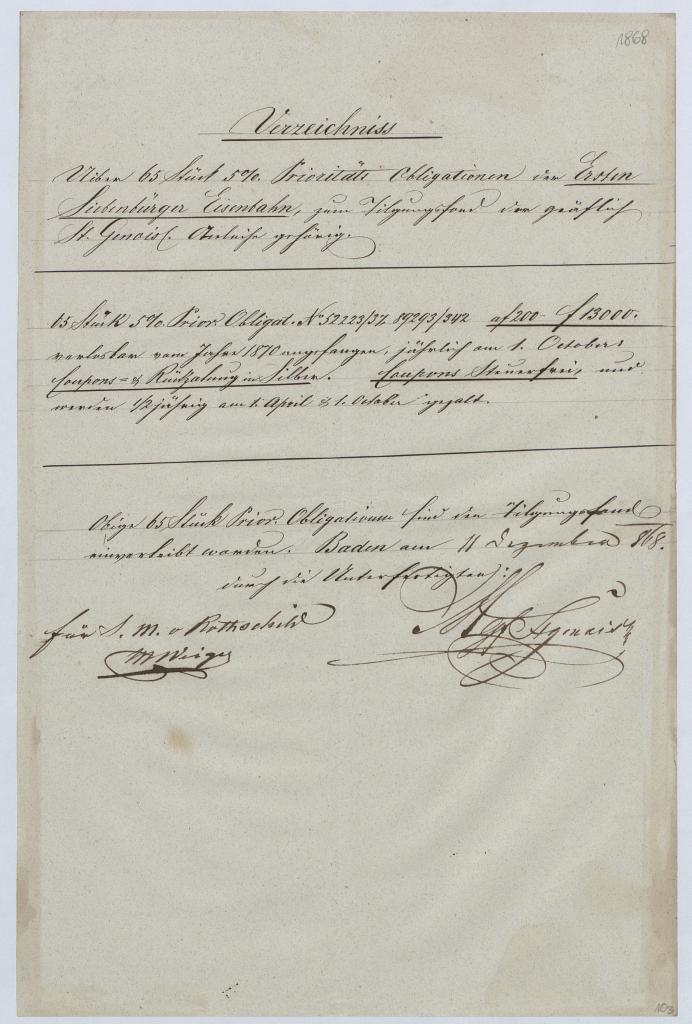 1868
Verzeichniss
Uiber 65 Stück 5% Prioritäts Obligationen der Ersten
Siebenbürger Eisenbahn, zum Tilgungsfond der gräflich
St. Genois'. Anleihe gehörig.
65 Stück 5% Prior. Obligat. No 52223/37, 89293/342 af 200 - f 13000.
verlosbar vom Jahre 1870 angefangen, jährlich am 1. October:
Coupons= & Rückzalung in Silber. Coupons Steuerfrei, und
werden 1/2 jährig am 1. April & 1. October gezalt.
Obige 65 Stück Prior. Obligationen sind dem Tilgungsfond
einverleibt worden. Baden am 11 Dezember 868.
durch die Unterfertigten:
für S. M. v Rothschild
St genois
103